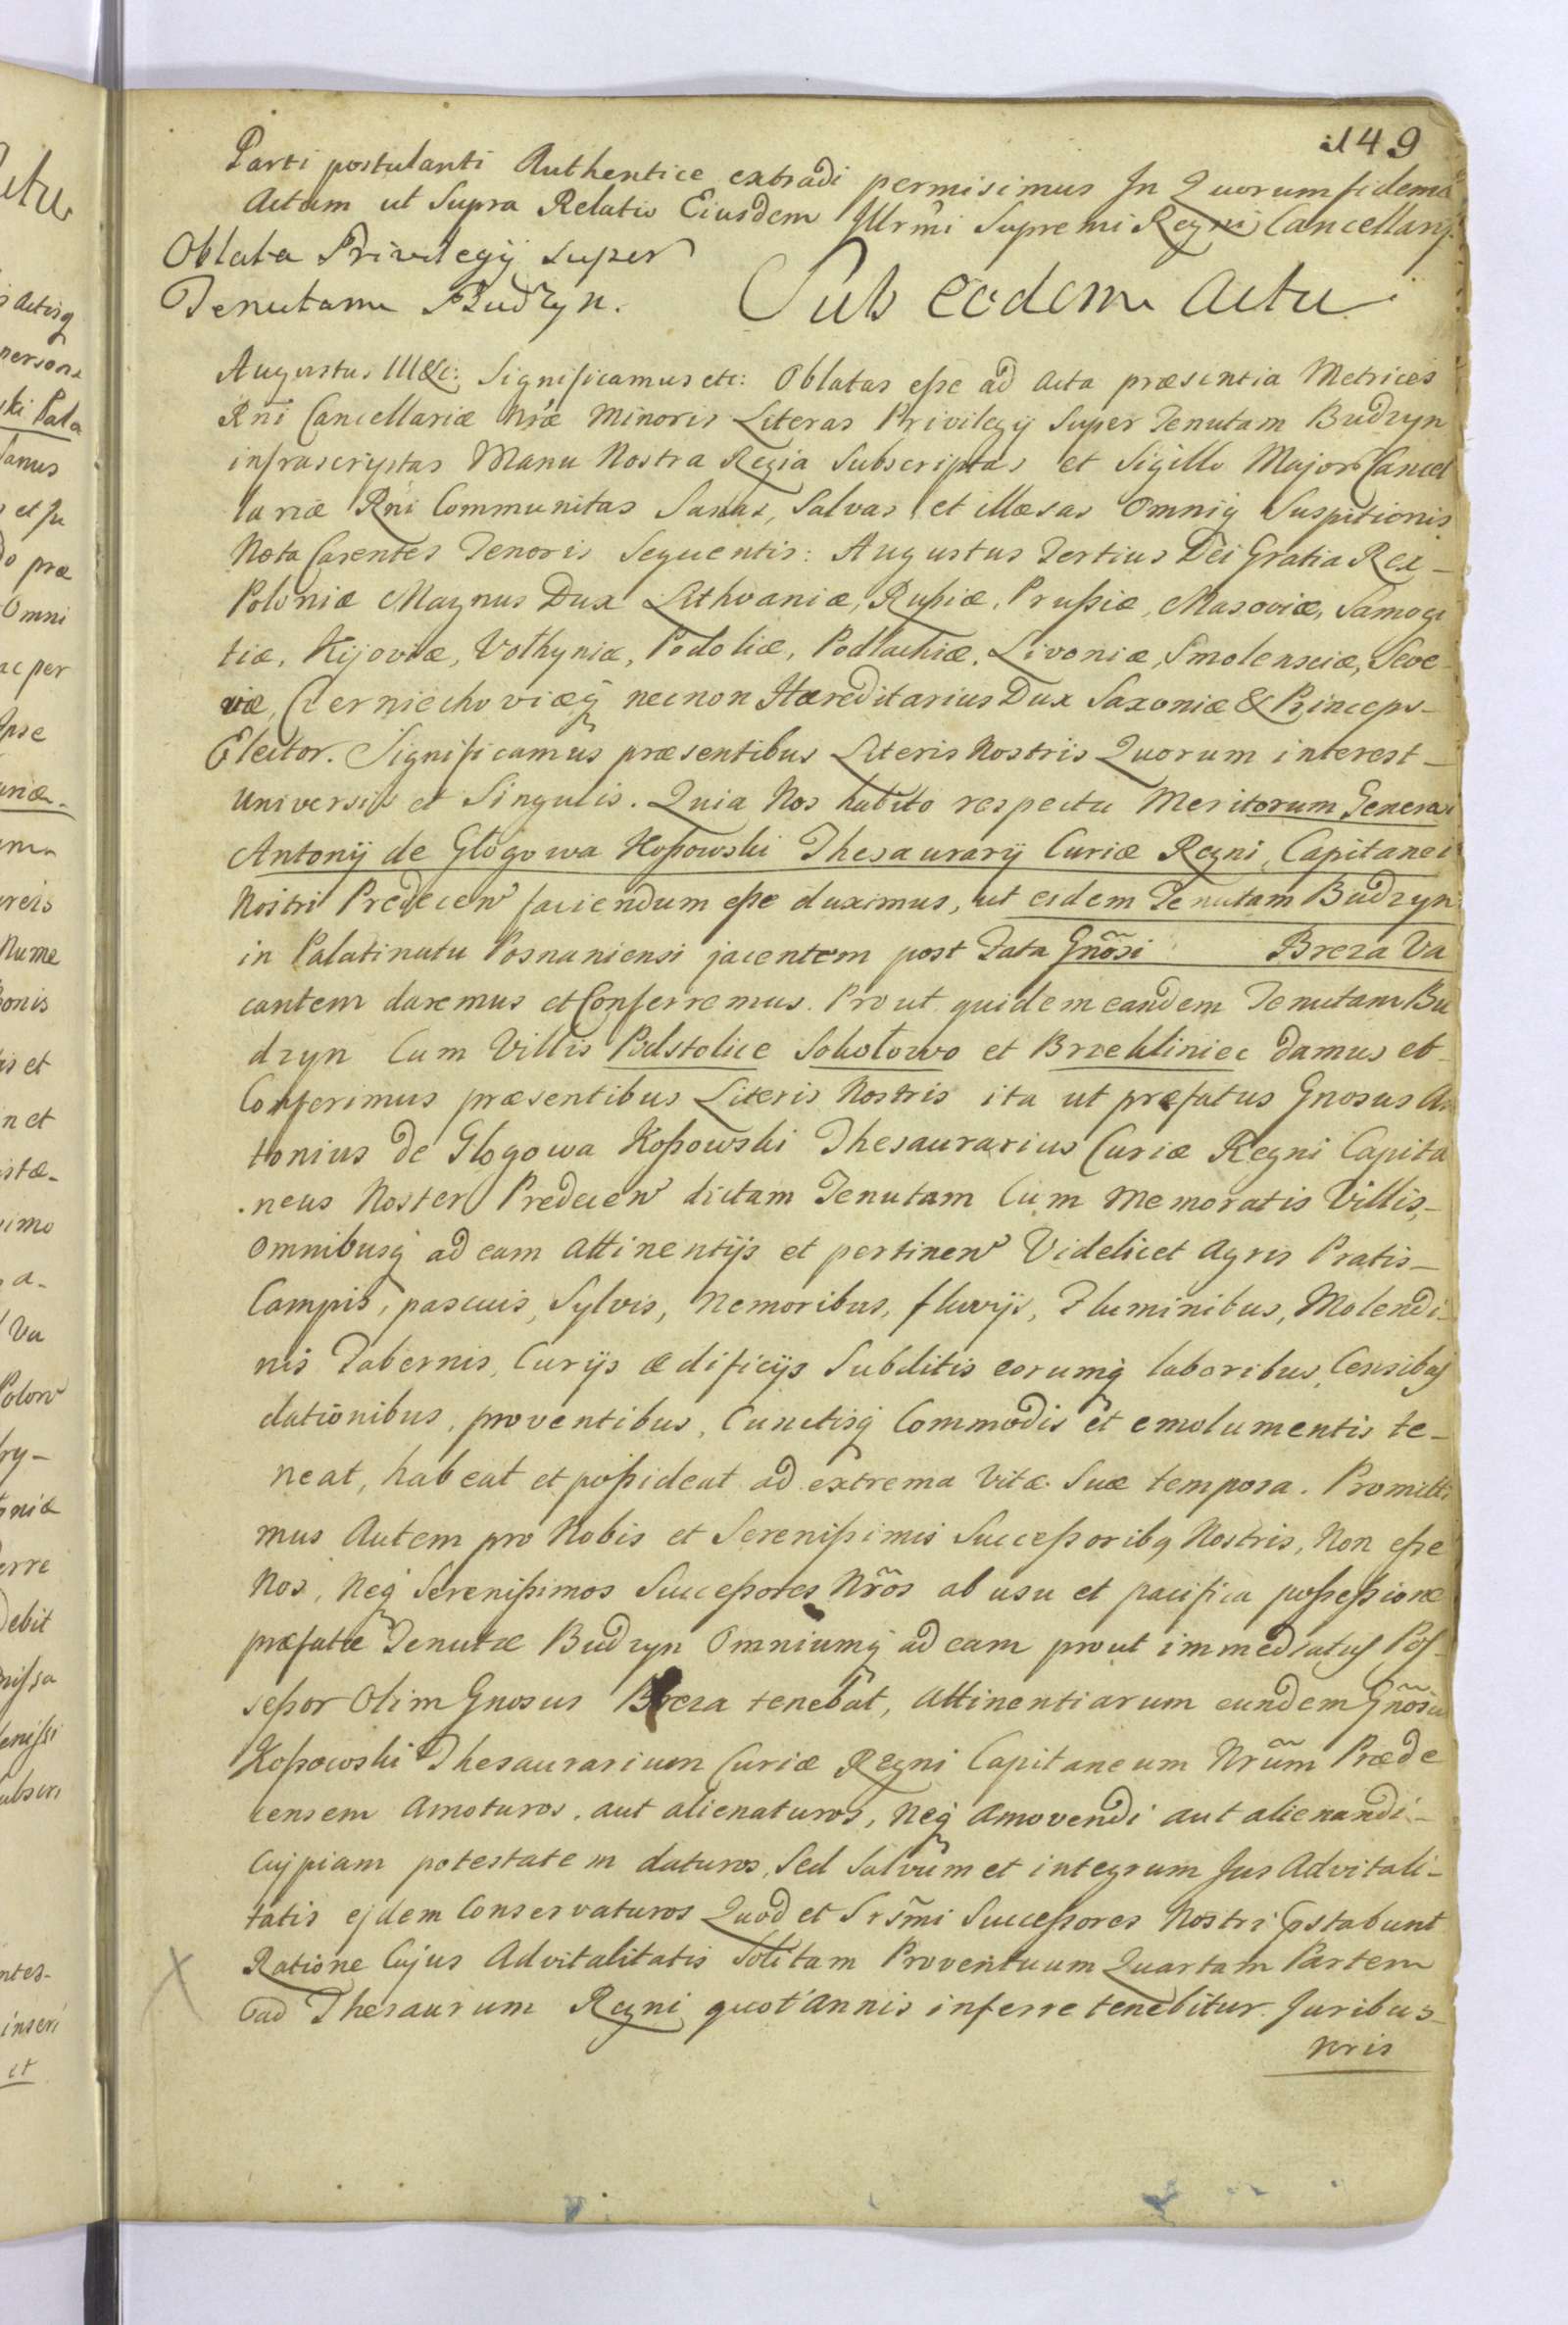 149
Parti postulanti Authentice extradi permisimus In Quorum fidem
Actum ut Supra Relatio Eiusdem Illrmi Supremi Regni Cancellarÿ.
Oblata Privilegÿ super
Tenutam Budzyn.
Sub eodem Actu
Augustus III &c: Significamus etc: Oblatas eße ad Acta præsentia Metrices
Rñi Cancellariæ Nræ Minoris Literas Privilegÿ Super Tenutam Budzyn
infrascriptas Manu Nostra Regia Subscriptas et Sigillo Majori Cancel
lariæ Rñi Communitas Sanas, Salvas et illæsas Omniq Suspitionis
Nota Carentes Tenoris Sequentis: Augustus Tertius Dei Gratia Rex –
Poloniæ Magnus Dux Lithvaniæ, Rußiæ, Prußiæ, Masoviæ, Samogi
tiæ, Kijoviæ, Volhyniæ, Podoliæ, Podlachiæ, Livoniæ, Smolensciæ, Seve
riæ, Czerniechoviæq necnon Hæreditarius Dux Saxoniæ & Princeps –
Elector. Significamus præsentibus Literis Nostris Quorum interest –
Universis et Singulis. Quia Nos habito respectu Meritorum Generosi
Antonÿ de Głogowa Koßowski Thesaurarÿ Curiæ Regni, Capitanei
Nostri Predecen faciendum eße duximus, ut eidem Tenutam Budzyn
in Palatinatu Posnaniensi jacentem post Fata Gñosi Breza Va
cantem daremus et Conferremus. Prout quidem eandem Tenutam Bu
dzyn Cum Villis Podstolice Sokołowo et Brzekliniec damus et –
Conferimus præsentibus Literis Nostris ita ut præfatus Gnosus An
tonius de Głogowa Koßowski Thesaurarius Curiæ Regni Capita
neus Noster Predecen dictam Tenutam Cum Memoratis Villis, –
Omnibusq ad eam Attinentÿs et pertinen Videlicet Agris Pratis –
Campis, pascuis, Sylvis, Nemoribus, fluvÿs, Fluminibus, Molendi
nis Tabernis, Curÿs ædificÿs Subditis eorumq laboribus, Censibq
dationibus, proventibus, Cunctisq Commodis et emolumentis te –
neat, habeat et poßideat ad extrema Vitæ Suæ tempora. Promitti
mus Autem pro Nobis et Serenißimis Succeßoribq Nostris, Non eße
Nos, Neq Serenißimos Succeßores Nr̃os ab usu et pacifica poßeßione
præfatæ Tenutæ Budzyn Omniumq ad eam prout immediatus Pos –
seßor Olim Gnosus Breza tenebat, Attinentiarum eundem Gñosu
Koßowski Thesaurarium Curiæ Regni Capitaneum Nrũm Præde
censem Amoturos, aut alienaturos, Neq Amovendi aut alienandi –
Cujpiam potestatem daturos, Sed Salvum et integrum Jus Advitali –
tatis ejdem Conservaturos Quod et Srs̃mi Succeßores Nostri pstabunt
Ratione Cujus Advitalitatis Solitam Proventuum Quartam Partem
ad Thesaurum Regni quot'annis inferre tenebitur. Juribus –
nris